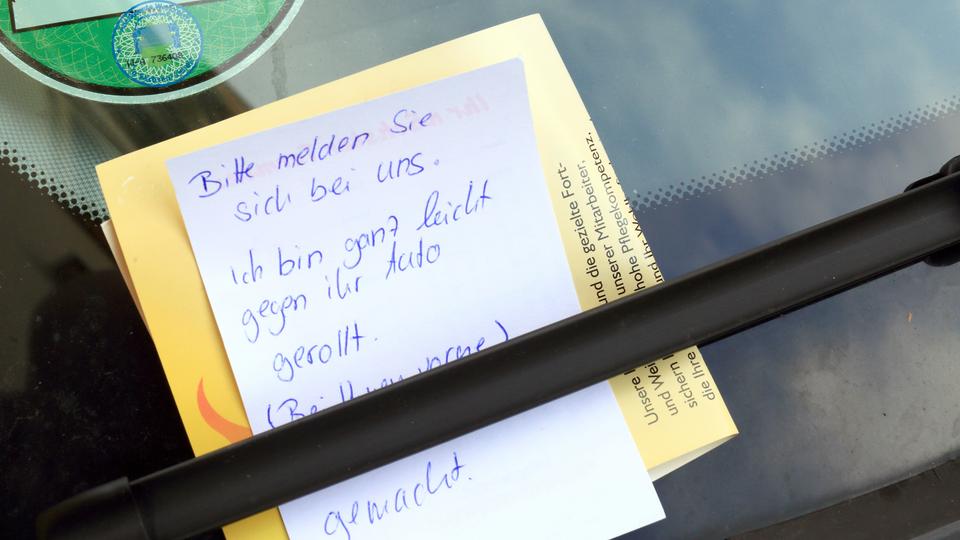 Bitte melden Sie
sich bei uns.
ich bin ganz leicht
gegen ihr Auto
gerollt.
(Bei Ihnen vorne)
gemacht.
und die gezielte Fort-
unserer Mitarbeiter,
hohe Pflegekompetenz.
und Ihr
Unsere
und Wei
sichern
die Ihre